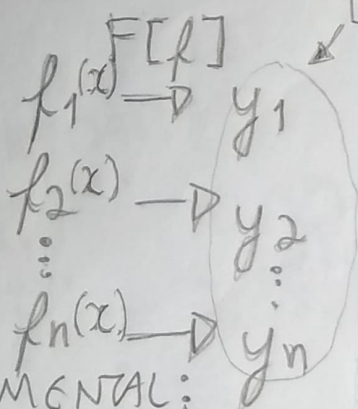 F[f]
f₁(x) → y₁
f₂(x) → y₂
⋮ ⋮
fₙ(x) → yₙ
MENTAL: